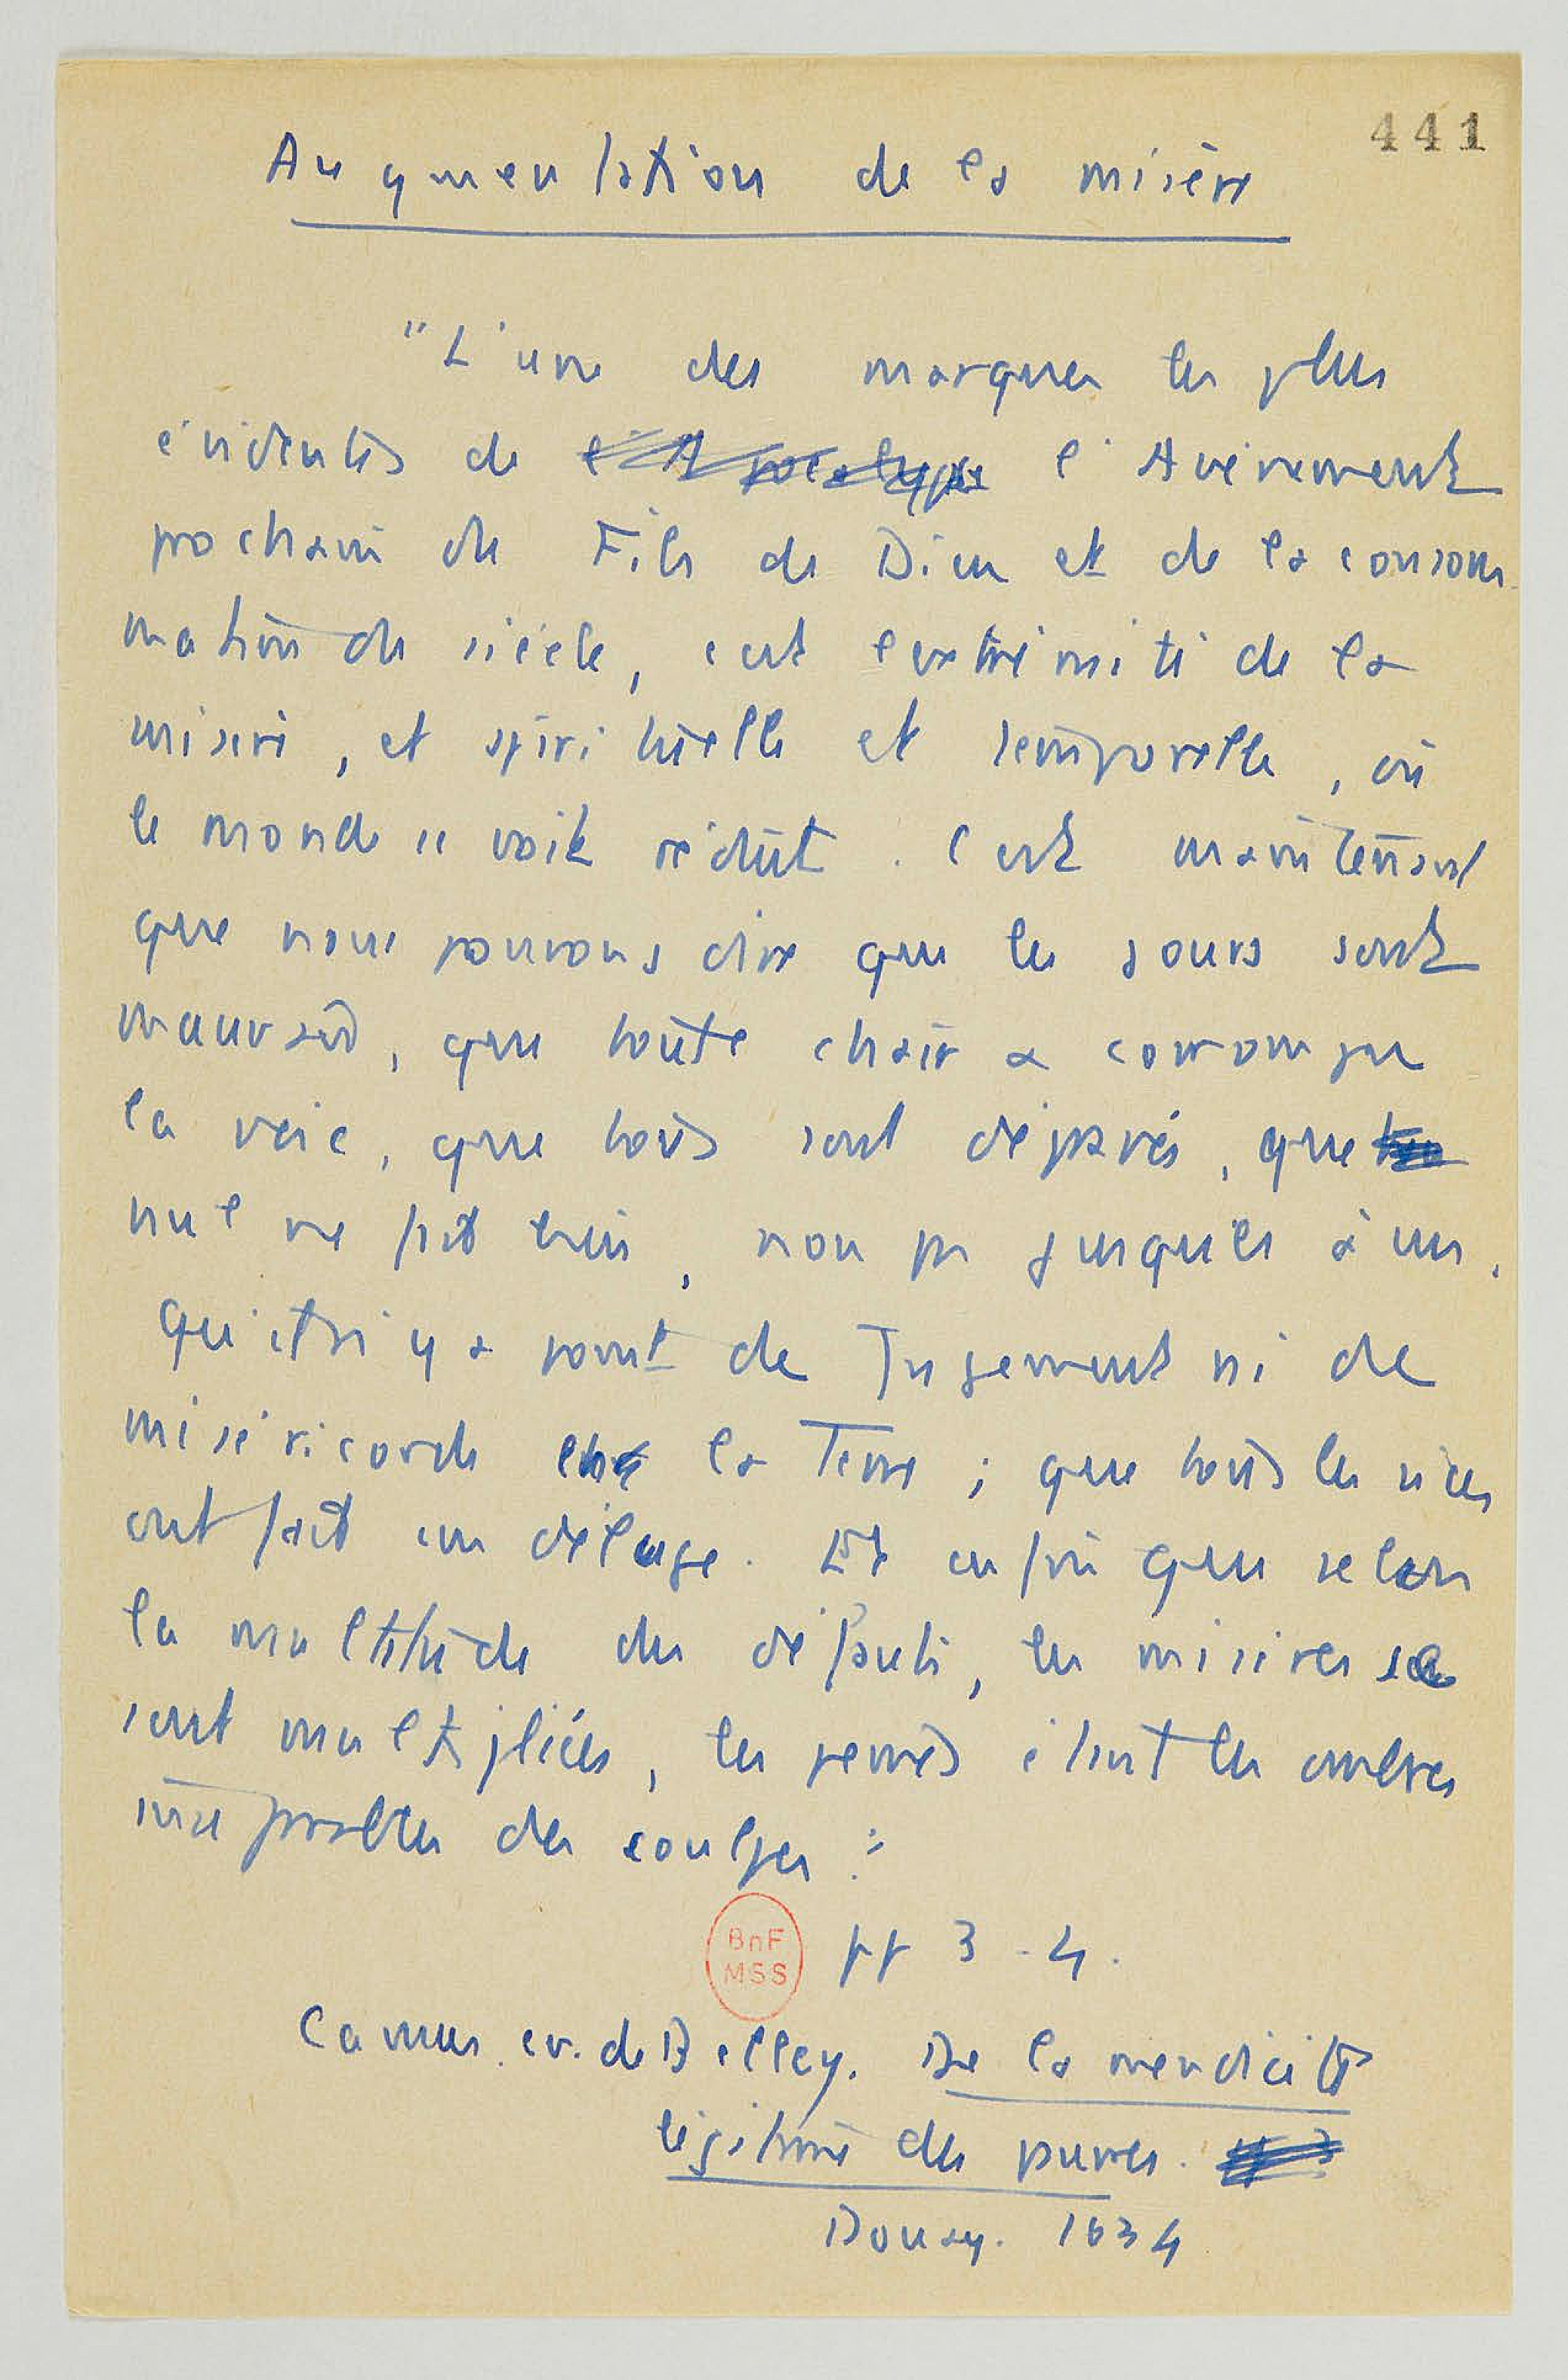 441
Augmentation de la misère
"L'une des marques les plus
évidentes de l'Apocalypse l'Avènement
prochain du Fils de Dieu et de la consom-
mation du siècle, c'est l'extrémité de la
misère, et spirituelle et temporelle, où
le monde se voit réduit. C'est maintenant
que nous pouvons dire que les jours sont
mauvais, que toute chair a corrompu
la voie, que tous sont dépravés, que
nul ne fait bien, non pas jusques à un.
Qu'il n'y a point de Jugement ni de
miséricorde la Terre ; que tous les vices
ont fait un déluge. Et enfin que selon
la multitude des défauts, les misères se
sont multipliées, les peines étant les ombres
inséparables des coulpes."
BnF
MSS
pp 3-4.
Camus. ev. de Belley. De la mendicité
légitime des pauvres.
Douay. 1634